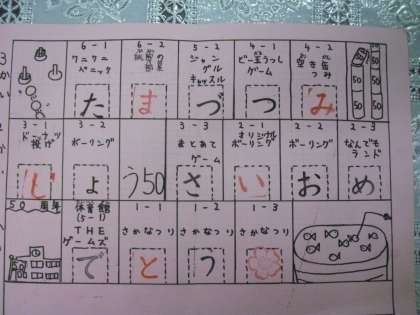 6-1
ワニワニ
パニック
た
6-2
ま
5-2
ジャン
グル
キャッスル
づ
4-1
ビー玉うつし
ゲーム
つ
4-2
空き缶
つみ
み
50
50
50
50
3-1
ドーナツ
投げ
じ
3-2
ボーリング
ょ
う50
3-3
まとあて
ゲーム
さ
2-1
オリジナル
ボーリング
い
2-2
ボーリング
お
2-3
なんでも
ランド
め
50周年
体育館
(5-1)
THE
ゲームズ
で
1-1
さかなつり
と
1-2
さかなつり
う
1-3
さかなつり